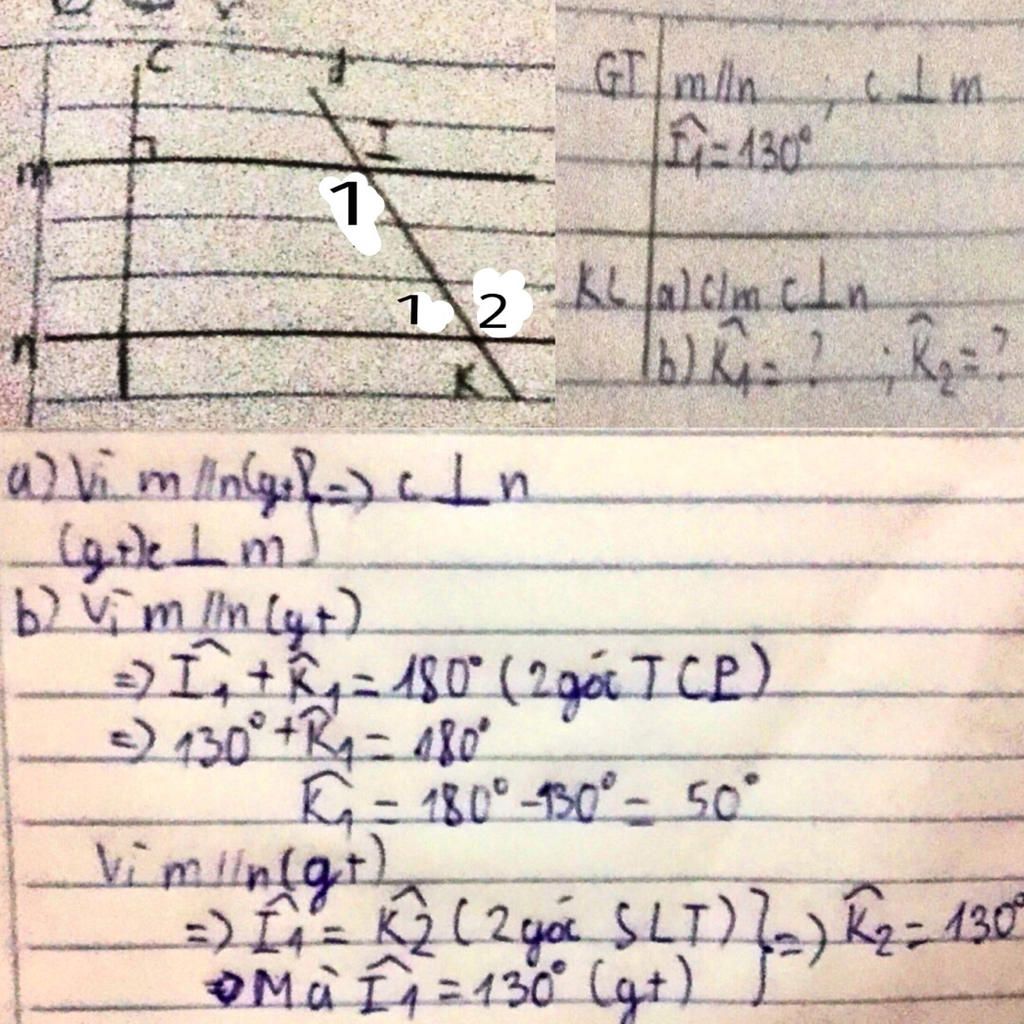 c
d
I
m
1
1 2
n
K
GT m//n ; c⊥m
Î₁=130°
KL a) c/m c⊥n
b) K̂₁= ? ; K̂₂= ?
a) Vì m//n(gt)} => c⊥n
(gt)c⊥m
b) Vì m//n (gt)
=> Î₁ + K̂₁ = 180° (2 góc TCP)
=> 130° + K̂₁ = 180°
K̂₁ = 180° - 130° = 50°
Vì m//n(gt)
=> Î₁ = K̂2 (2 góc SLT) } => K̂₂ = 130°
Mà Î₁ = 130° (gt)